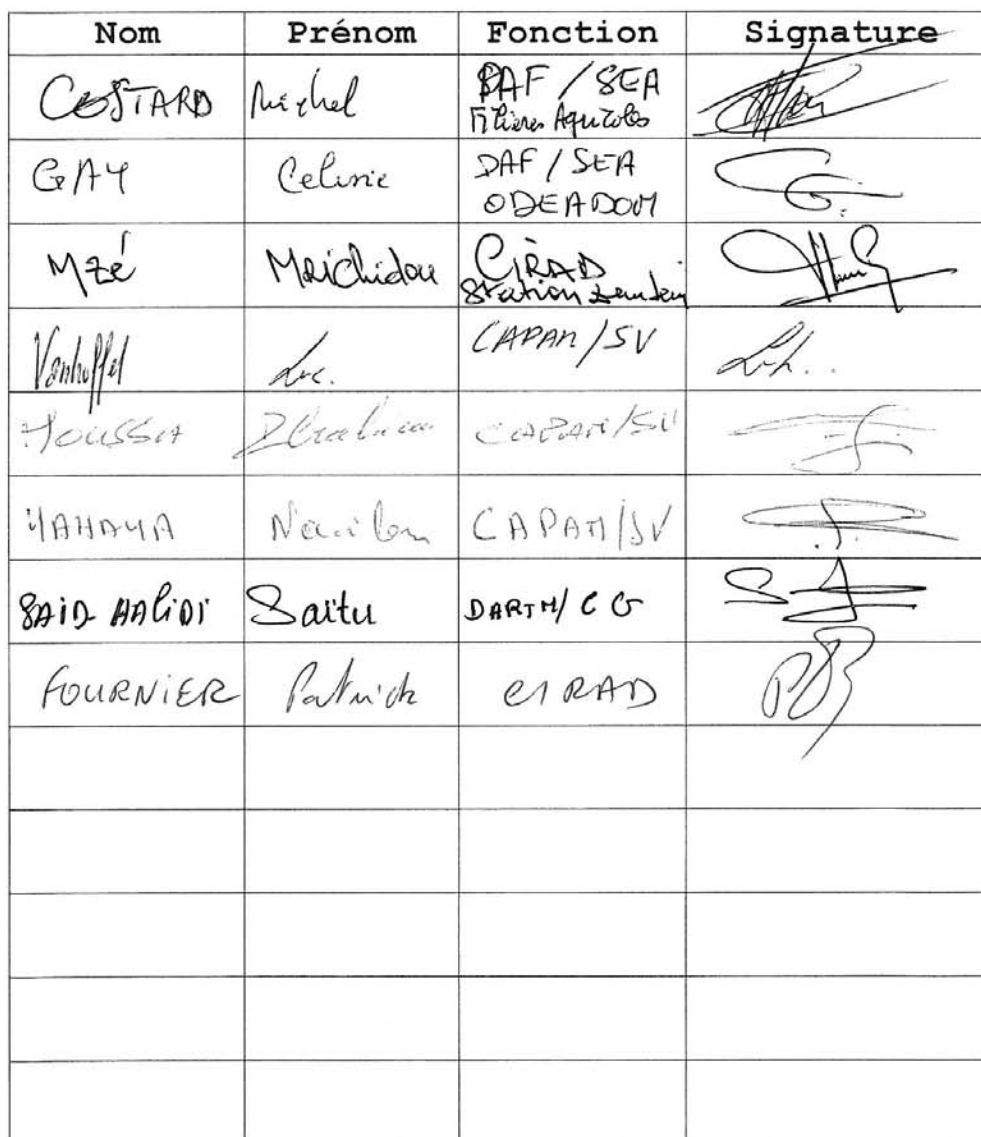 Nom Prénom Fonction Signature
COSTARD Michel DAF / SEA
Filières Agricoles
GAY Celine DAF / SEA
ODEADOM
Mzé Mrichidou CIRAD
Station
Vanhuffel Luc. CAPAM/SV
MOUSSA Ibrahim CAPAM/SV
YAHAYA CAPAM/SV
SAID HALIDI Saitu DARTM/CG
FOURNIER Patrick CIRAD